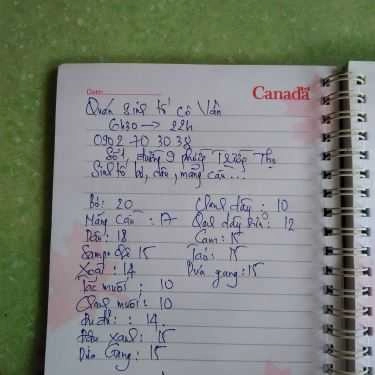 Date:
Canada
Quán sinh tố cô Vân
6h30 → 22h
0902 70 30 38
Số 1, đường 9 phường Trường Thọ
Sinh tố bơ, dâu, mãng cầu ...
Bơ: 20 Chanh dây : 10
Mãng Cầu : 17 Chanh dây sữa : 12
Dâu : 18 Cam : 15
Sampoche 15 Táo : 15
Xoài : 14 Dưa gang : 15
Tắc muối : 10
Chanh muối : 10
Đu đủ : 14
Đậu xanh : 15
Dưa Gang : 15